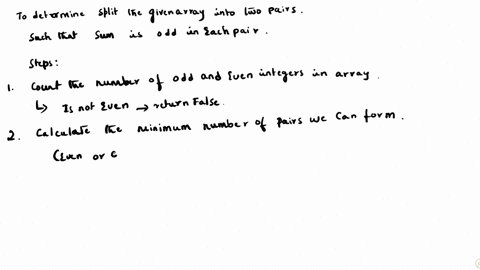 To determine split the given array into two pairs.
Such that sum is odd in each pair.
Steps:
1. Count the number of odd and even integers in array.
↳ Is not even → return False.
2. Calculate the minimum number of pairs we can form.
(even or e